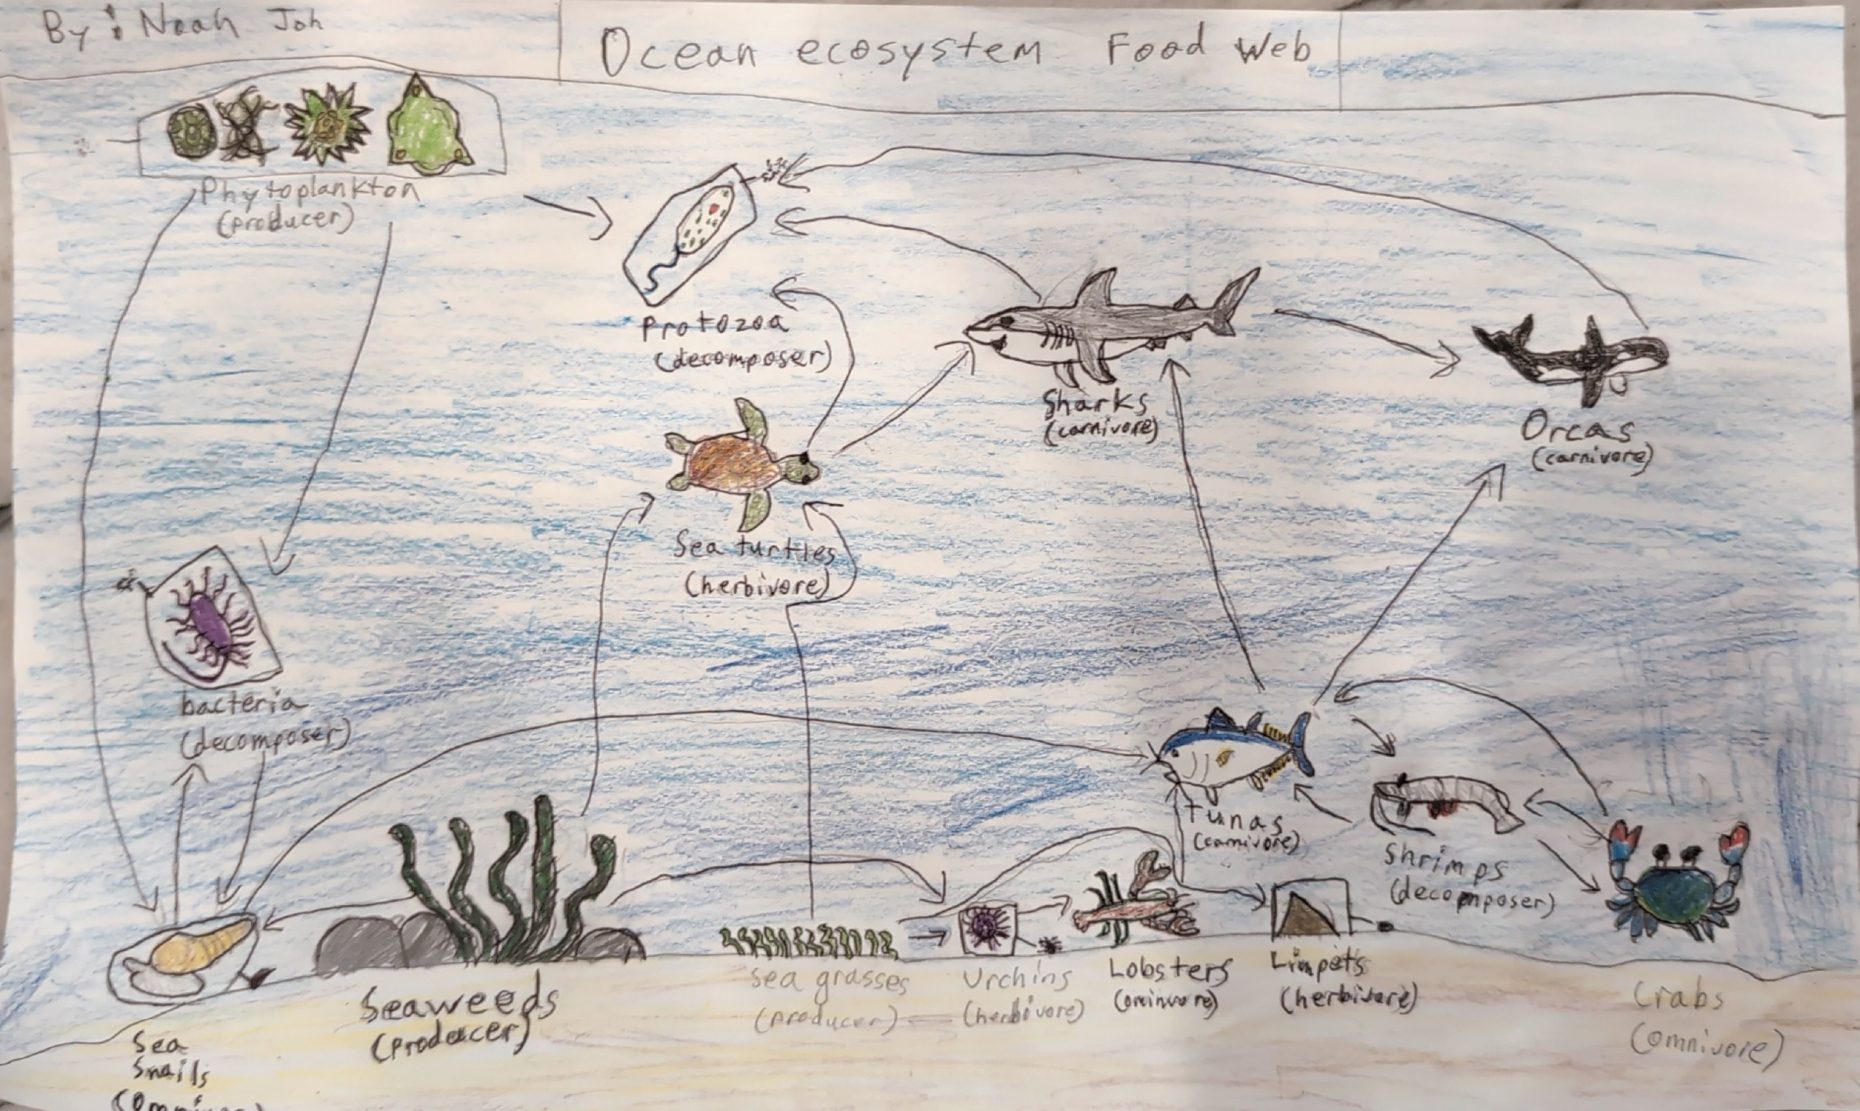 By: Noah Joh
Ocean ecosystem Food Web
Phytoplankton
(producer)
Protozoa
(decomposer)
Sharks
(carnivore)
Orcas
(carnivore)
Sea turtles
(herbivore)
bacteria
(decomposer)
tunas
(carnivore)
Shrimps
(decomposer)
Seaweeds
(producer)
Sea grasses
(producer)
Urchins
(herbivore)
Lobsters
(ominvore)
Limpets
(herbivore)
Crabs
(omnivore)
Sea
Snails